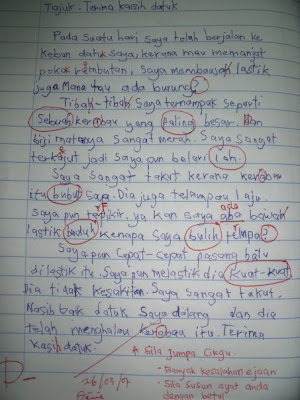 Tajuk : Terima kasih datuk
Pada suatu hari saya telah berjalan ke
kebun datuk saya, kerana mau memanjat
pokok rambutan, saya membawah lastik
juga mana tau ada burung?
Tibah-tibah saya ternampak seperti
Sebuah kerabau yang paling besar. Dan
biji matanya sangat merah. Saya sangat
terkajut jadi saya pun belari lah.
Saya sangat takut kerana kerabau
itu buduh saya. Dia juga telampau laju.
saya pun tepikir, ya kan saya aba bawah
ada
lastik buduh kenapa saya bulih telmpa?
Saya pun cepat-cepat pasang batu
dilastik itu. Saya pun melastik dia kuat-kuat
dia tidak kesakitan. Saya sangat takut,
Nasib baik datuk saya datang dan dia
telah menghalau kerabau itu. Terima
kasih datuk.
* Sila jumpa cikgu.
- Banyak kesalahan ejaan
- Sila susun ayat anda
dengan betul
D-
26/05/07